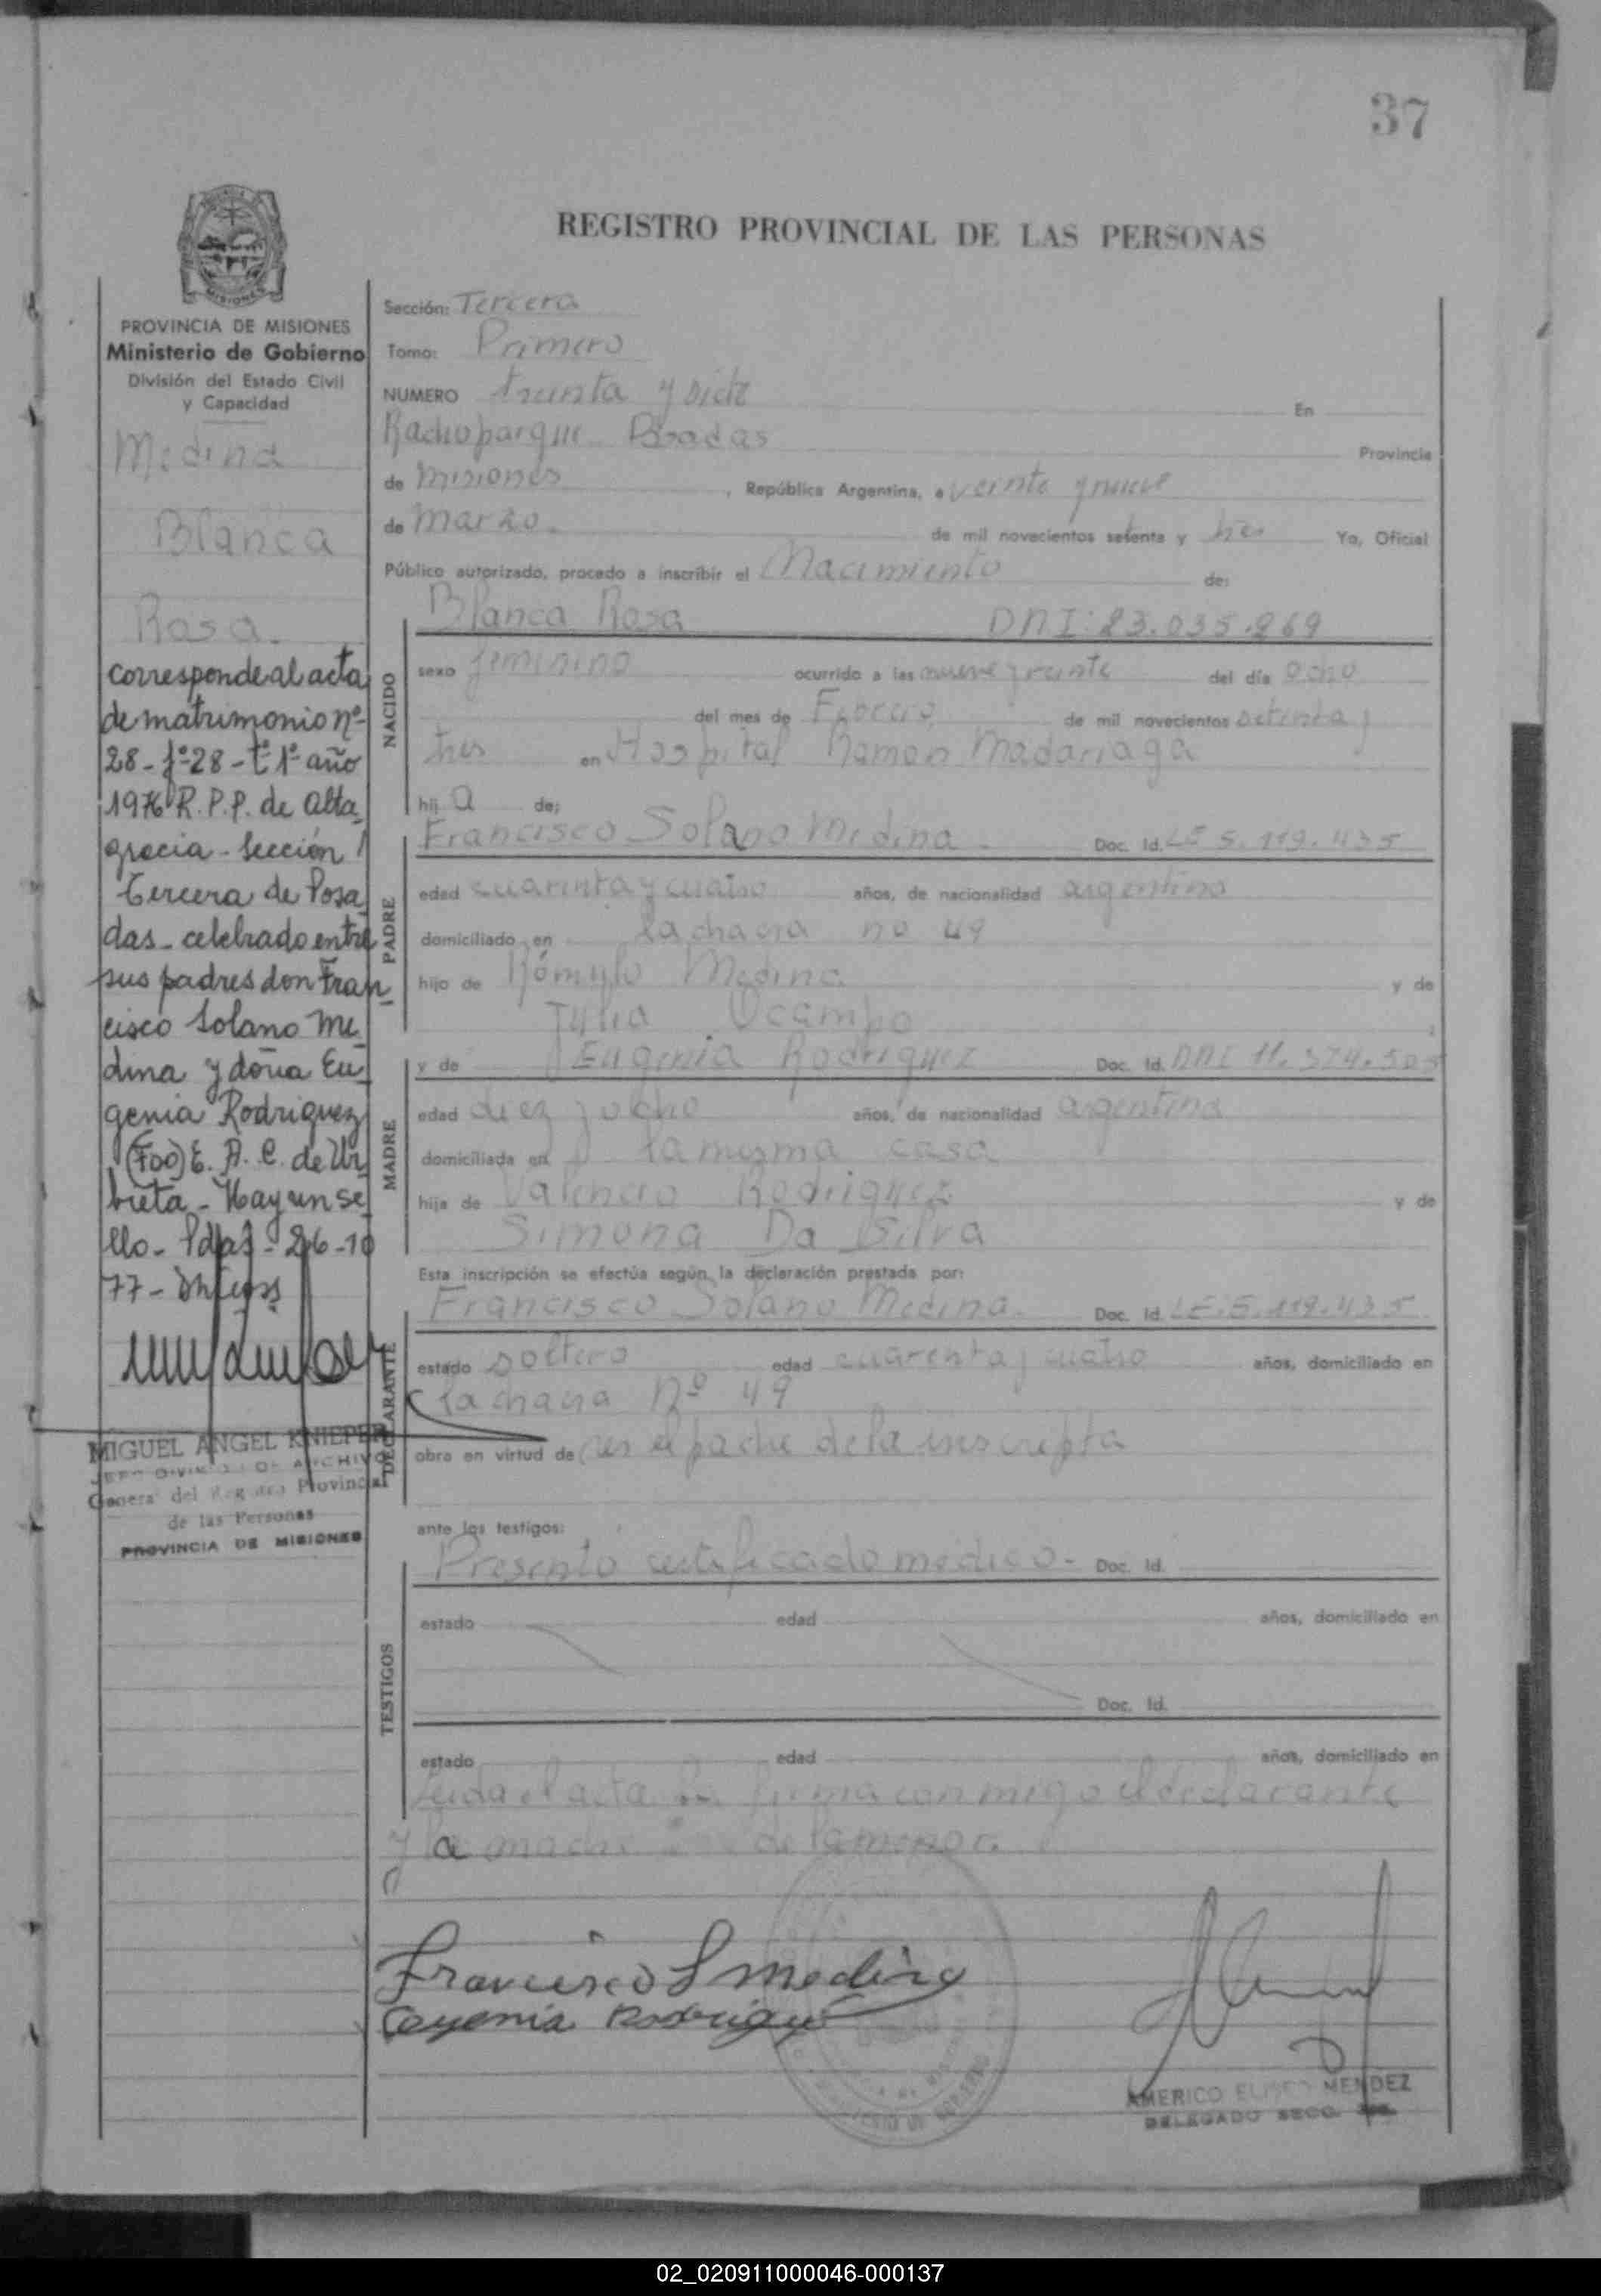 37
REGISTRO PROVINCIAL DE LAS PERSONAS
MISIONES
PROVINCIA DE MISIONES
Ministerio de Gobierno
División del Estado Civil
y Capacidad
Medina
Blanca
Rosa.
corresponde al acta
de matrimonio nº
28 - fº 28 - tº 1º año
1976 R. P. P. de Alta
gracia - Sección
Tercera de Posa
das - celebrado entre
sus padres don Fran
cisco Solano Me
dina y doña Eu
genia Rodriguez
(Fdo) E. A. C. de Ur
bieta - Hay un se
llo - Pdas - 26 - 10
77 -
MIGUEL ANGEL KNIEPER
JEFE DIVISION DE ARCHIVO
General del Registro Provincial
de las Personas
PROVINCIA DE MISIONES
Sección: Tercera
Tomo: Primero
NUMERO treinta y siete En
Posadas Provincia
de Misiones, República Argentina, a veinte y nueve
de Marzo. de mil novecientos setenta y tres Yo, Oficial
Público autorizado, procedo a inscribir el Nacimiento de:
Blanca Rosa DNI: 23.035.969
NACIDO
sexo femenino ocurrido a las nueve y veinte del día ocho
del mes de Febrero de mil novecientos setenta y
tres en Hospital Ramon Madariaga
hij a de:
Francisco Solano Medina Doc. Id. LE 5.119.435
PADRE
edad cuarenta y cuatro años, de nacionalidad argentino
domiciliado en la chacra no 49
hijo de Rómulo Medina y de
Julia Ocampo
y de Eugenia Rodriguez Doc. Id. DNI 11.374.505
MADRE
edad diez y ocho años, de nacionalidad argentina
domiciliada en la misma casa
hija de Valencio Rodriguez y de
Simona Da Silva
Esta inscripción se efectúa según la declaración prestada por:
Francisco Solano Medina. Doc. Id. LE. 5.119.435
DECLARANTE
estado soltero edad cuarenta y cuatro años, domiciliado en
la chacra Nº 49
obra en virtud de ser el padre de la inscripta
ante los testigos:
Presento certificado medico - Doc. Id.
TESTIGOS
estado edad años, domiciliado en
Doc. Id.
estado edad años, domiciliado en
Leida el acta la firma conmigo el declarante
y la madre de la menor.
Francisco S Medina
Eugenia Rodriguez
AMERICO ELISEO MENDEZ
DELEGADO SECC. 3ra.
02_020911000046-000137